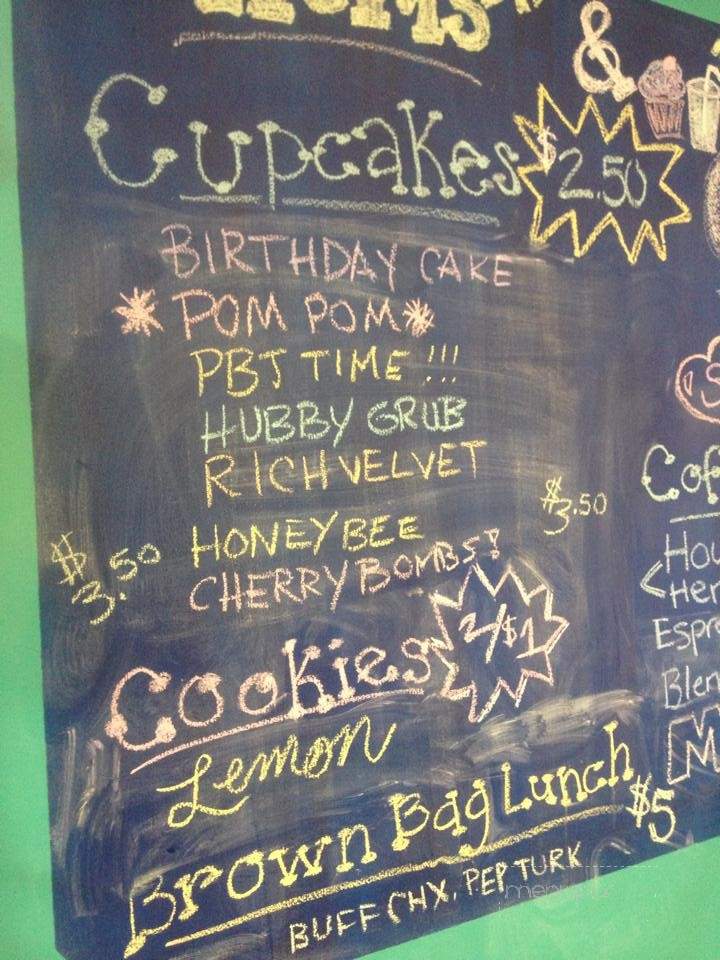 Cupakes $2.50
BIRTHDAY CAKE
*POM POM*
PBJ TIME!!!
HUBBY GRUB
RICH VELVET
$3.50
$3.50
HONEY BEE
CHERRY BOMBS!
Cookies 2/$1
Lemon
Brown Bag Lunch $5
BUFF CHX, PEP TURK
&
Cof
Hou
Her
Espr
Blen
M